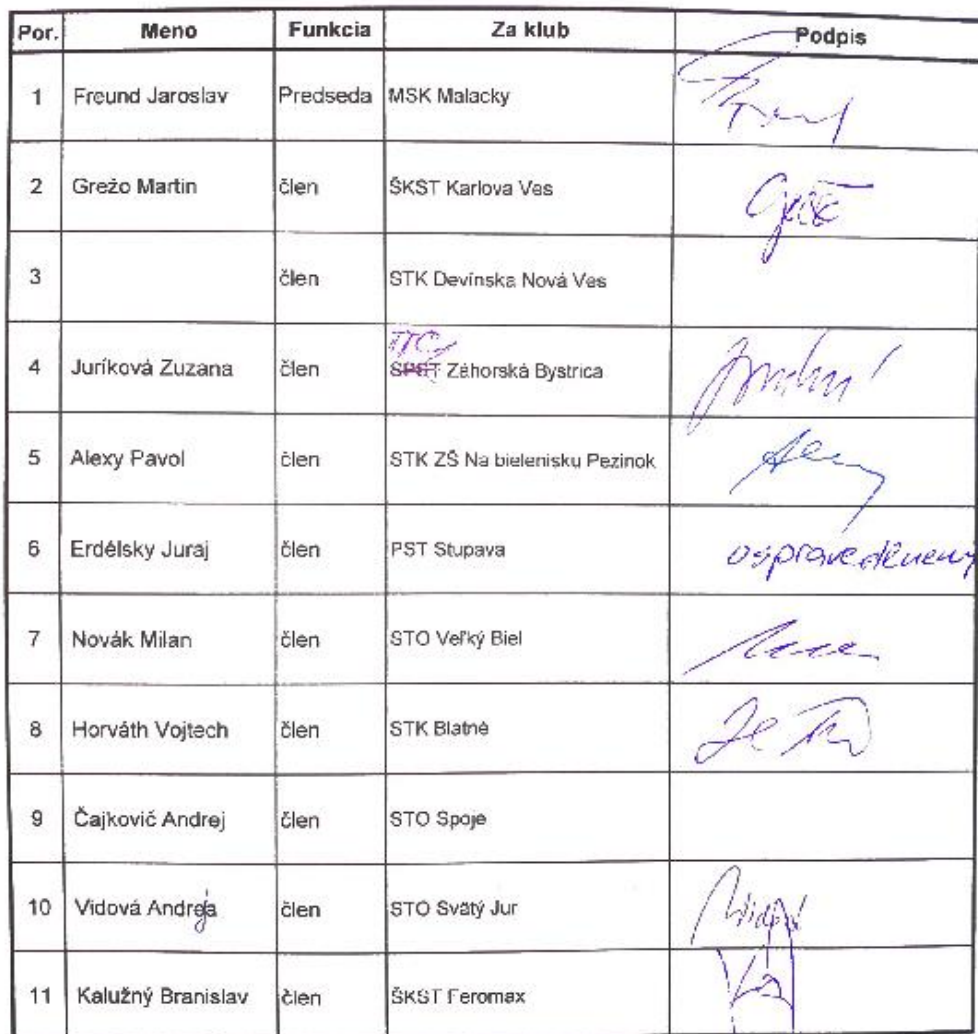 Por. Meno Funkcia Za klub Podpis
1 Freund Jaroslav Predseda MSK Malacky
2 Grežo Martin člen ŠKST Karlova Ves
3 člen STK Devínska Nová Ves
TTC
4 Juríková Zuzana člen SPST Záhorská Bystrica
5 Alexy Pavol člen STK ZŠ Na bielenisku Pezinok
6 Erdélsky Juraj člen PST Stupava ospravedlnený
7 Novák Milan člen STO Veľký Biel
8 Horváth Vojtech člen STK Blatné
9 Čajkovič Andrej člen STO Spoje
10 Vidová Andreja člen STO Svätý Jur
11 Kalužný Branislav člen ŠKST Feromax